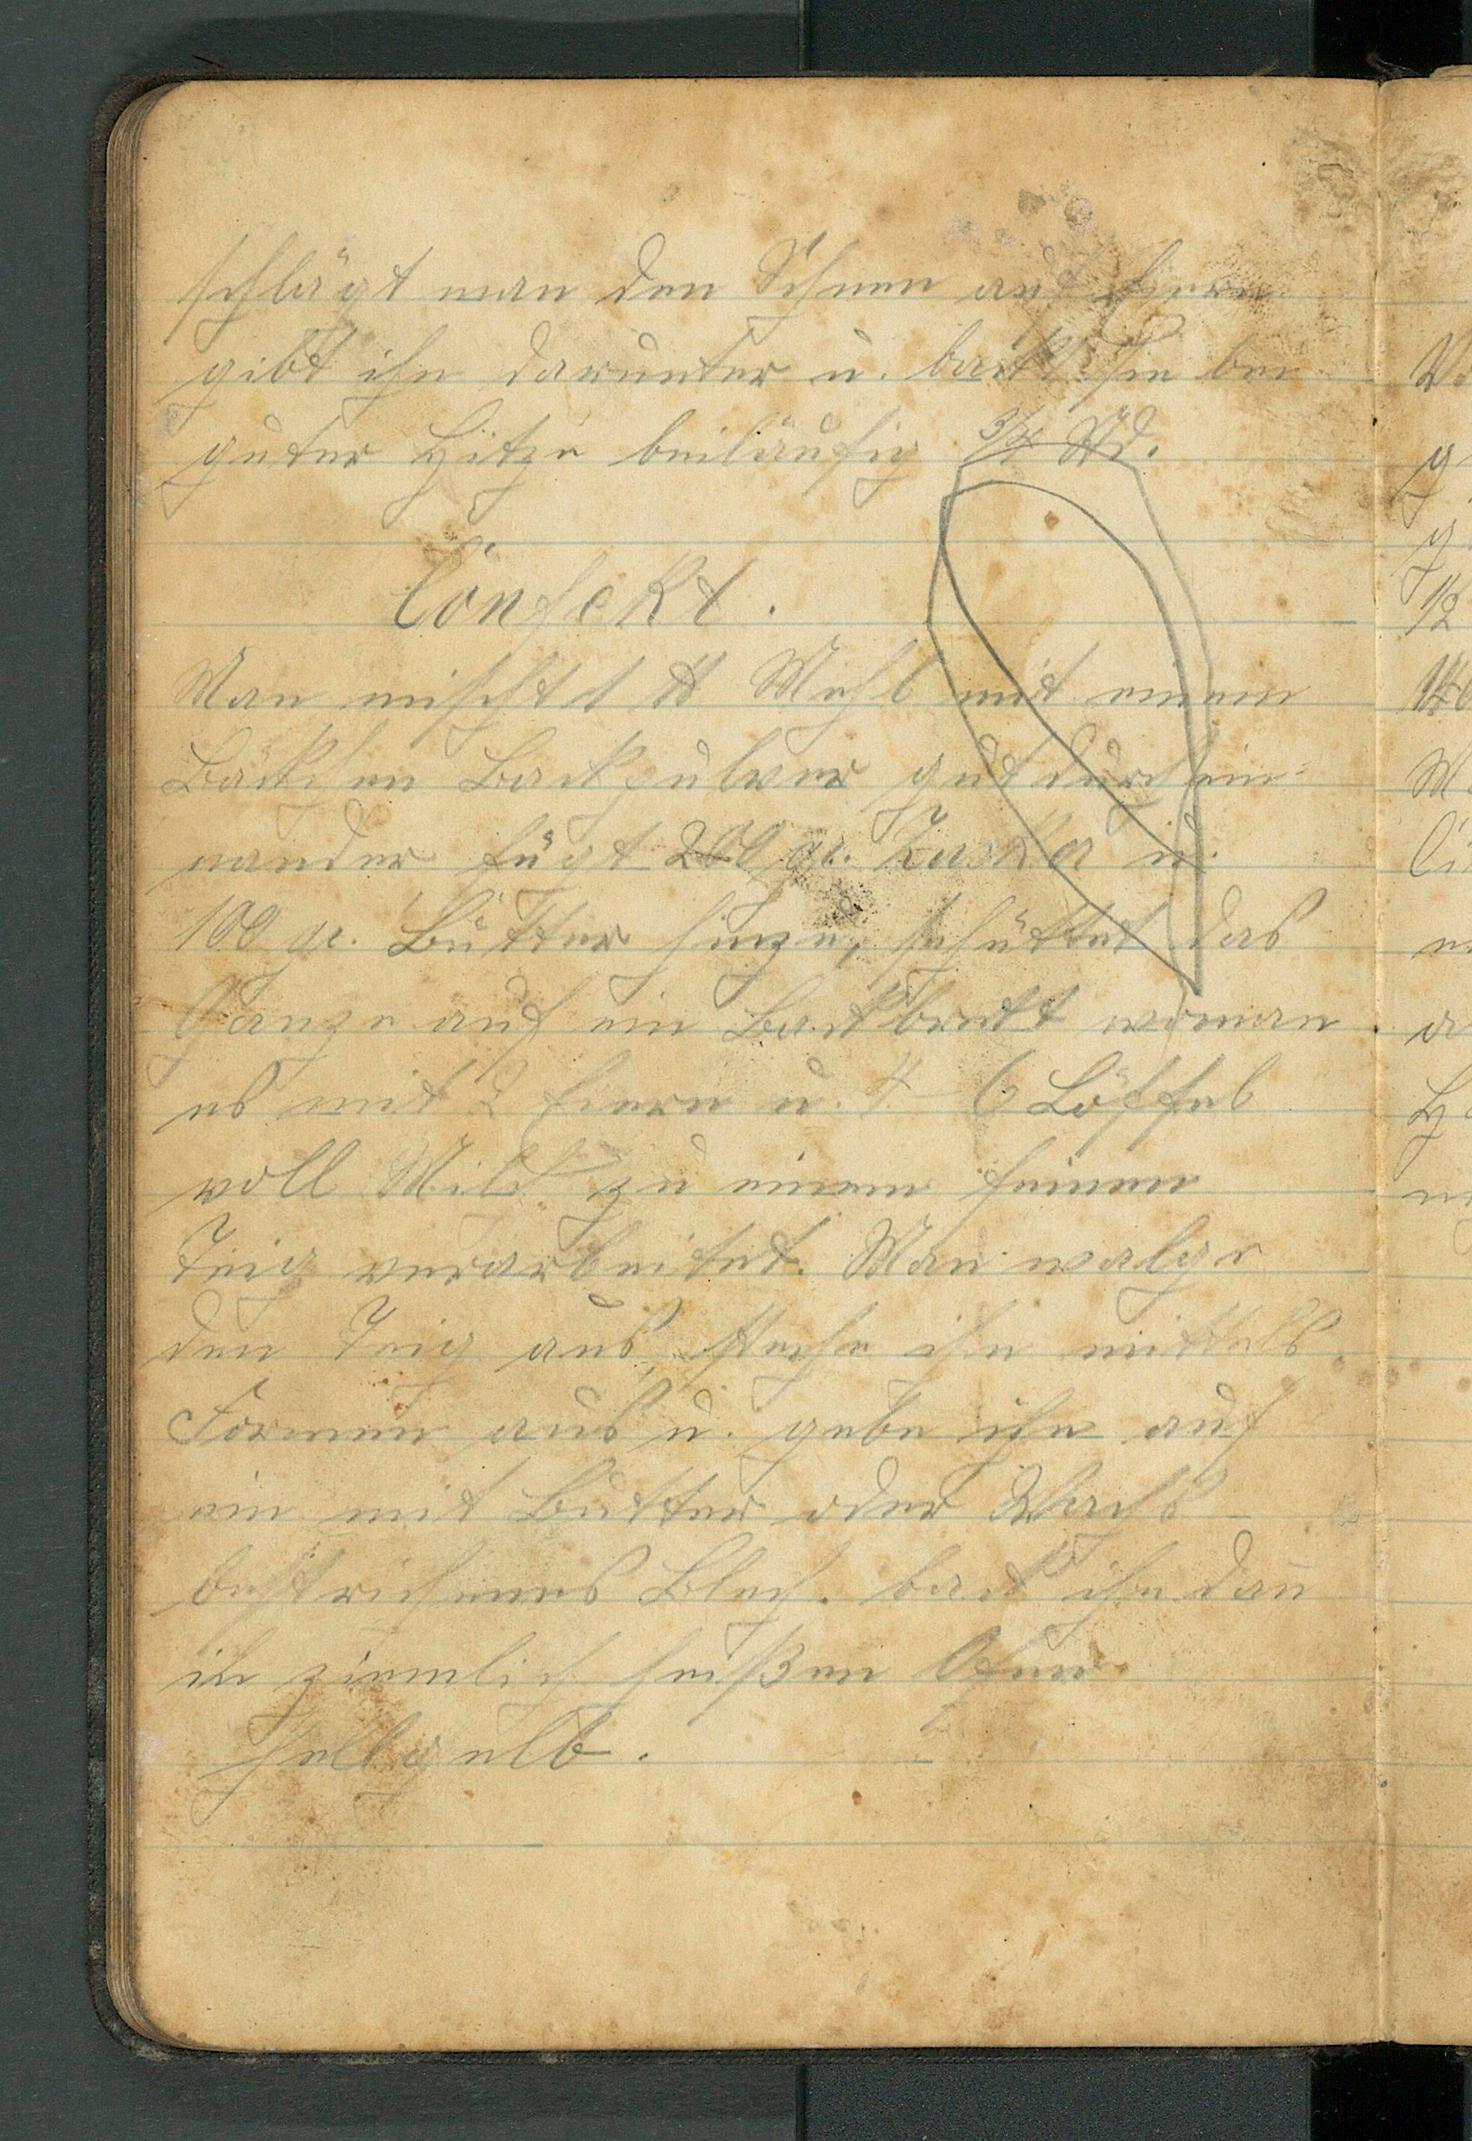 schlägt man den Schnee auf Eiern
gibt ihn darunter u. backt ihn bei
guter Hitze beiläufig 3/4 Std.
Confekt.
Man mischt 1 ℔ Mehl mit einem
Päckchen Backpulver gut durchein-
nander fügt 200 gr. Zucker u.
100 gr. Butter hinzu, schüttet das
Ganze auf ein Backbrett wo man
es mit 2 Eiern u. 4 – 6 Löffel
voll Milch zu einem feinen
Teig verarbeitet. Man walge
den Teig aus, steche ihn mittels
Formen aus u. gebe ihn auf
ein mit Butter oder Wachs
bestrichenes Blech. back ihn dan̄
in ziemlich heißen Ofen
hellgelb.